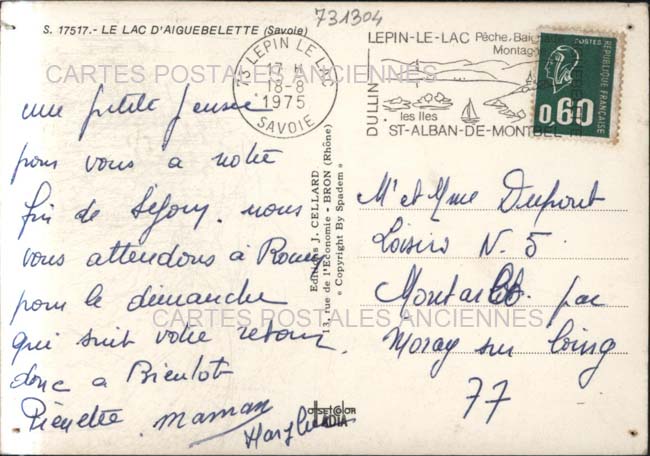 731304
S. 17517.- LE LAC D'AIGUEBELETTE (Savoie)
73 LEPIN LE LAC
17 H
18-8
1975
SAVOIE
LEPIN-LE-LAC Pêche, Bai
Montagne
DULLIN
les Iles
ST-ALBAN-DE-MONTBEL
POSTES
REPUBLIQUE FRANÇAISE
0,60
CARTES POSTALES ANCIENNES
une petite pensée
pour vous a notre
fin de séjour. nous
vous attendons à
pour le dimanche
qui suit votre retour.
donc a Bientot
Pierrette. maman
Editions J. CELLARD
13, rue de l'Economie - BRON (Rhône)
« Copyright By Spadem »
Mr et Mme Dupont
Loisirs N. 5
par
Moray sur Loing
77
CARTES POSTALES ANCIENNES
OFFSETCOLOR